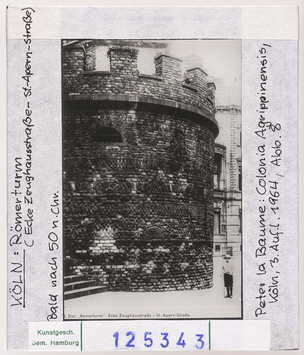 KÖLN: Römerturm
(Ecke Zeughausstraße- St.Apern-straße)
bald nach 50 n. Chr.
Der „Römerturm“, Ecke Zeughausstraße - St.-Apern-Straße
Peter la Baume: Colonia Agrippinensis,
Köln, 3. Aufl. 1964, Abb. 8
Kunstgesch.
Sem. Hamburg
125343